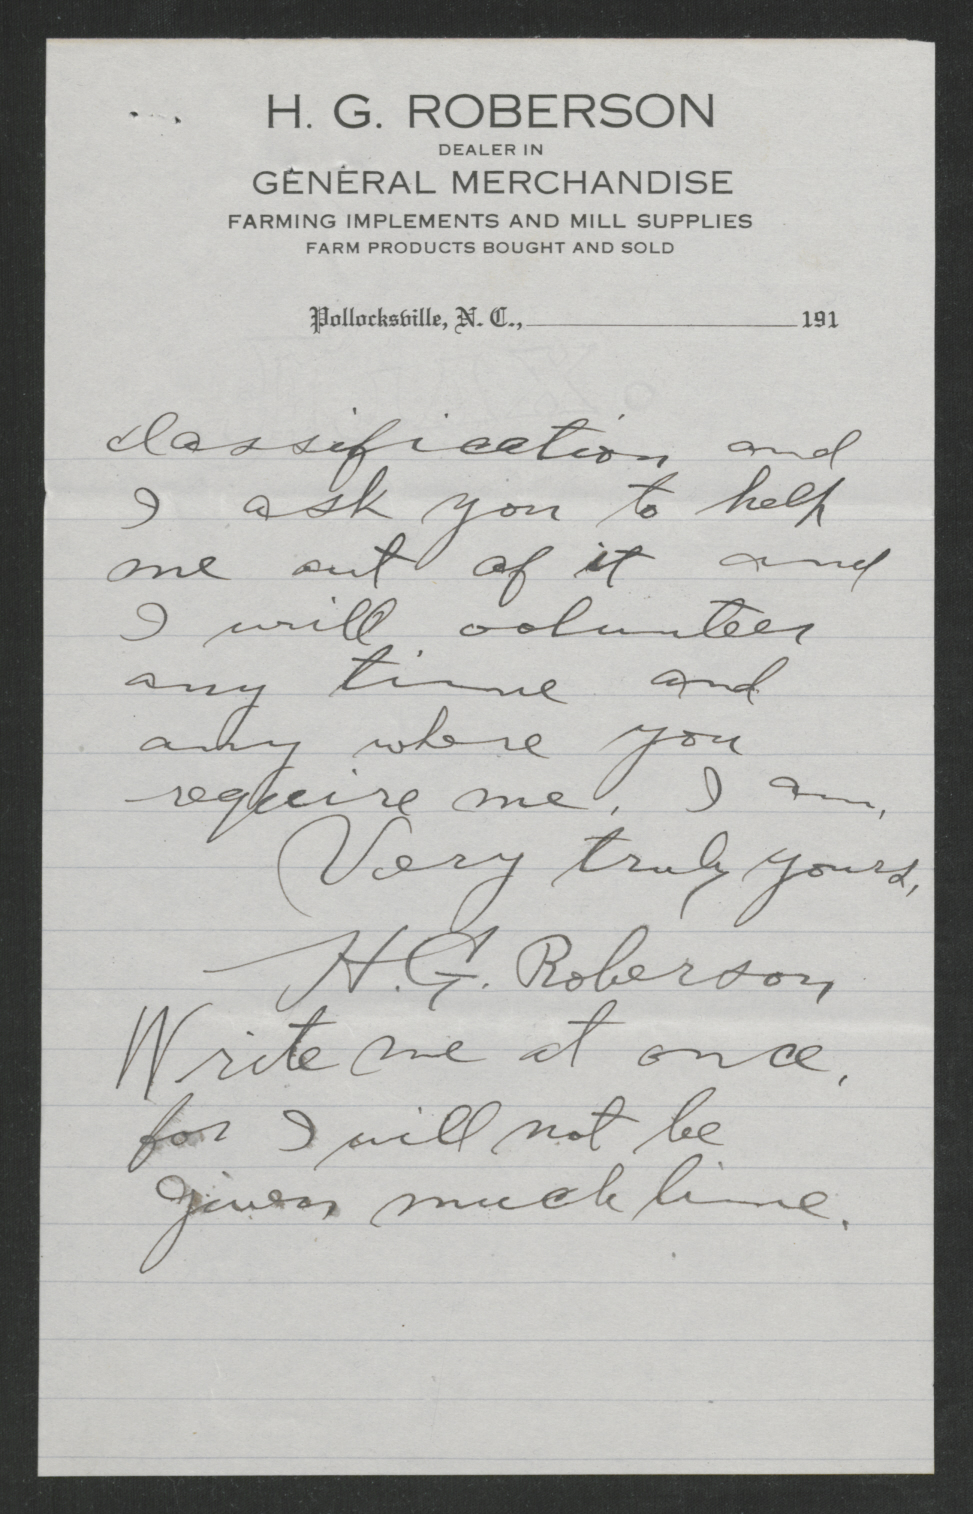 H. G. ROBERSON
DEALER IN
GENERAL MERCHANDISE
FARMING IMPLEMENTS AND MILL SUPPLIES
FARM PRODUCTS BOUGHT AND SOLD
Pollocksville, N. C., 191
classification and
I ask you to help
me out of it and
I will volunteer
any time and
any where you
require me. I am,
Very truly yours,
H. G. Roberson
Write me at once,
for I will not be
given much time.